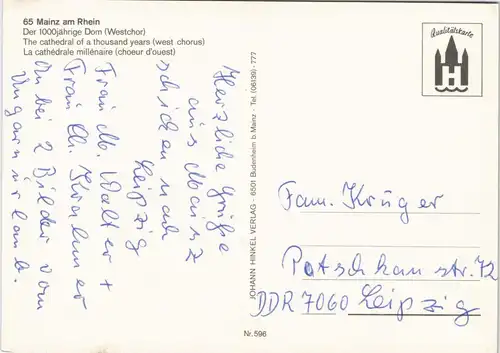 65 Mainz am Rhein
Der 1000jährige Dom (Westchor)
The cathedral of a thousand years (west chorus)
La cathédrale millénaire (choeur d'ouest)
Qualitätskarte
H
Herzliche Grüße
aus Mainz
schicken nach
Leipzig
Frau M. Walter +
Frau Ch. Kralmer
Anbei 2 Bilder vom
Ungarnurlaub.
JOHANN HINKEL VERLAG - 6501 Budenheim b. Mainz - Tel. (06139) - 777
Fam. Krüger
Potschkaustr. 72
DDR 7060 Leipzig
Nr. 596